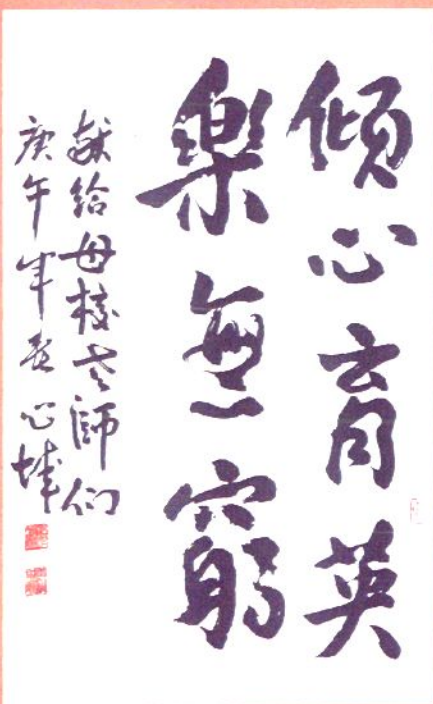 倾心育英
樂無窮
献给母校老师们
庚午年春心城